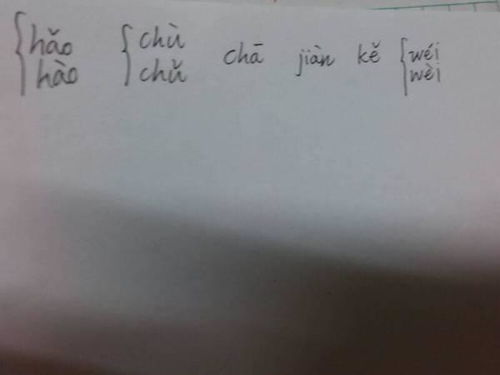 hǎo chù chā jiàn kě wéi
hào chǔ wèi